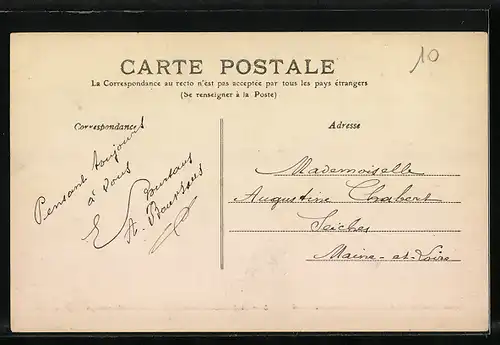 10
CARTE POSTALE
La Correspondance au recto n'est pas acceptée par tous les pays étrangers
(Se renseigner à la Poste)
Correspondance
Adresse
Pensant toujours
à vous
Mademoiselle
Augustine Chabert
Seiches
Maine-et-Loire